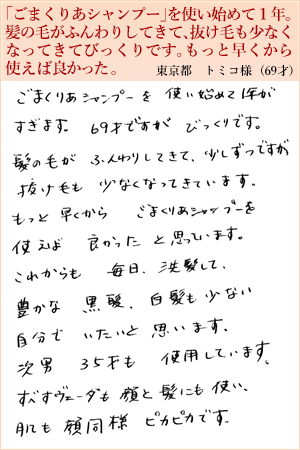 「ごまくりあシャンプー」を使い始めて1年。
髪の毛がふんわりしてきて、抜け毛も少なく
なってきてびっくりです。もっと早くから
使えば良かった。　東京都　トミコ様（69才）
ごまくりあシャンプーを 使い始めて1年が
すぎます。 69才ですが びっくりです。
髪の毛が ふんわりしてきて、少しずつですが
抜け毛も 少なくなってきています。
もっと 早くから ごまくりあシャンプーを
使えば 良かったと 思っています。
これからも 毎日、洗髪して、
豊かな 黒髪、白髪も少ない
自分で いたいと 思います。
次男 35才も 使用しています。
すべすべヴェーダも 顔と髪にも使い、
肌も顔同様 ピカピカです。